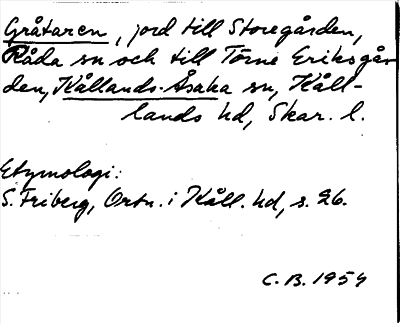 Gråtaren, jord till Storegården,
Råda sn och till Törne Eriksgår
den, Kållands-Åsaka sn, Kåll-
lands hd, Skar. l.
Etymologi:
S. Friberg, Ortn. i Kåll. hd, s. 26.
C. B. 1954